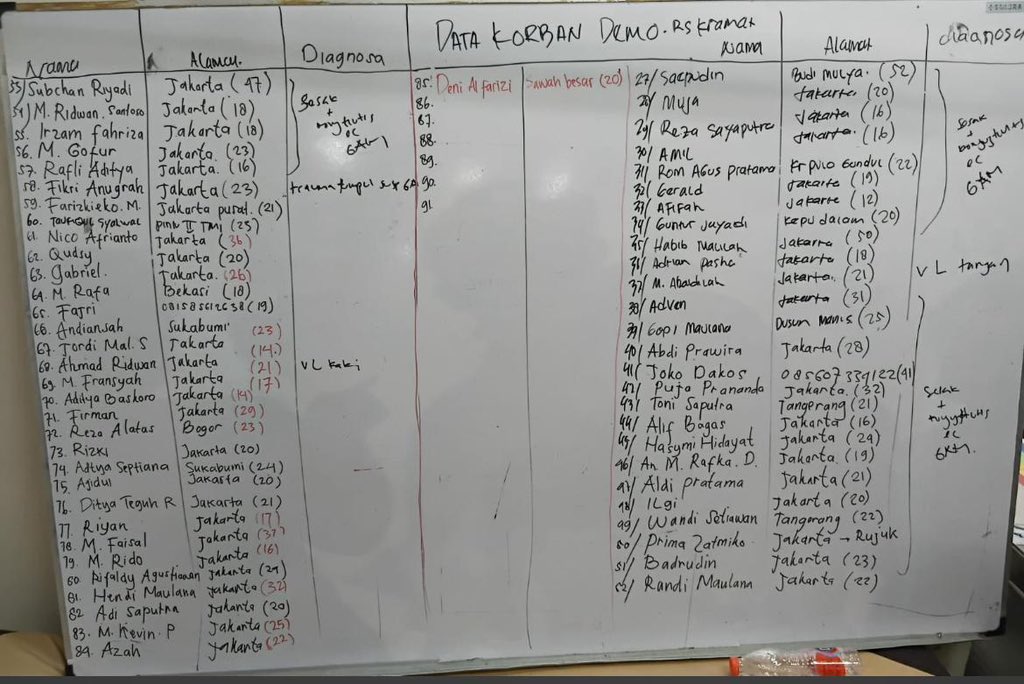 DATA KORBAN DEMO. RS Kramat
Nama Alamat Diagnosa
53/ Subchan Riyadi Jakarta (47)
54/ M. Ridwan. Santoso Jakarta (18)
55. Irzam fahriza Jakarta (18)
56. M. Gofur Jakarta. (23)
57. Rafli Aditya Jakarta. (16)
Sesak
+
ec
GAM
58. Fikri Anugrah Jakarta (23) trauma
59. Farizkieko. M. Jakarta pusat. (21)
60. Syalwal (25)
61. Nico Afrianto Jakarta (36)
62. Qudsy Jakarta (20)
63. Gabriel. Jakarta. (26)
64. M. Rafa Bekasi (18)
65. Fajri (19)
66. Andiansah Sukabumi (23)
67. Jordi Mal. S Jakarta (14.)
68. Ahmad Ridwan Jakarta (21) VL kaki
69. M. Fransyah Jakarta (17)
70. Aditya Baskoro Jakarta (14)
71. Firman Jakarta (29)
72. Reza Alatas Bogor (23)
73. Rizki Jakarta (20)
74. Aditya Septiana Sukabumi (24)
75. Ajidul Jakarta (20)
76. Ditya Teguh R Jakarta (21)
77. Riyan Jakarta (17)
78. M. Faisal Jakarta (37)
79. M. Rido Jakarta (16)
80. Rifaldy Agustiawan Jakarta (29)
81. Hendi Maulana Jakarta (32)
82 Adi Saputra Jakarta (20)
83. M. Kevin. P Jakarta (25)
84. Azah Jakarta (22)
85. Deni Alfarizi Sawah besar (20)
86.
87.
88.
89.
90.
91.
Nama Alamat Diagnosa
27/ Saepudin Budi Mulya. (52)
28/ Muja Jakarta. (20)
29/ Reza Sayaputra Jakarta (16)
30/ AMIL Jakarta. (16)
31/ Rom Agus Pratama Kr Pulo Gundul (22)
32/ Gerald Jakarta (19)
33/ Afifah Jakarta (12)
34/ Guntur Jayadi Kepu dalam (20)
Sesak
+
ec
GAM
35/ Habib Maulah Jakarta (50)
36/ Adrian Pasha Jakarta (18)
37/ M. Jakarta. (21) VL tangan
38/ Adven Jakarta (31)
39/ Gopi Maulana Dusun Manis (25)
40/ Abdi Prawira Jakarta (28)
41/ Joko Dakos 085607339122 (41)
42/ Puja Prananda Jakarta. (32)
43/ Toni Saputra Tangerang (21)
44/ Alif Bagas Jakarta (16)
45/ Hasymi Hidayat Jakarta (24)
46/ An. M. Rafka. D. Jakarta. (19)
47/ Aldi pratama Jakarta (21)
48/ ILgi Jakarta (20)
49/ Wandi Setiawan Tangerang (22)
50/ Prima Zatmiko. Jakarta → Rujuk
51/ Badrudin Jakarta (23)
52/ Randi Maulana Jakarta (22)
Sesak
+
ec
GAM.